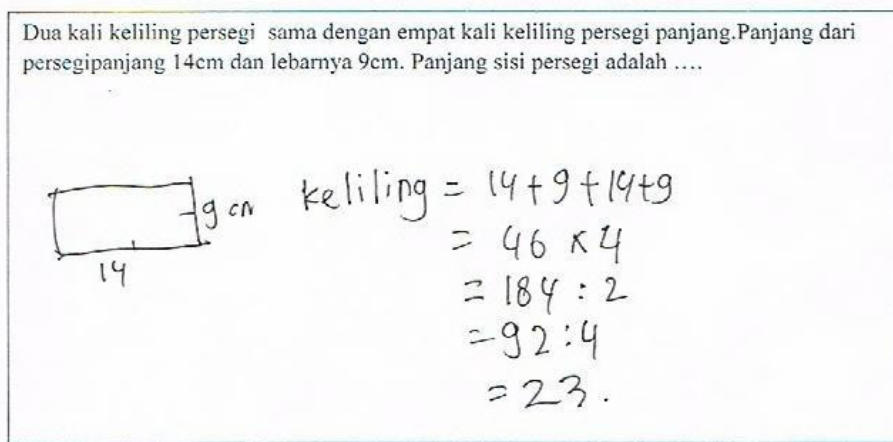 Dua kali keliling persegi sama dengan empat kali keliling persegi panjang.Panjang dari
persegipanjang 14cm dan lebarnya 9cm. Panjang sisi persegi adalah ....
9 cm
14
keliling = 14+9+14+9
= 46 x 4
= 184 : 2
= 92 : 4
= 23.